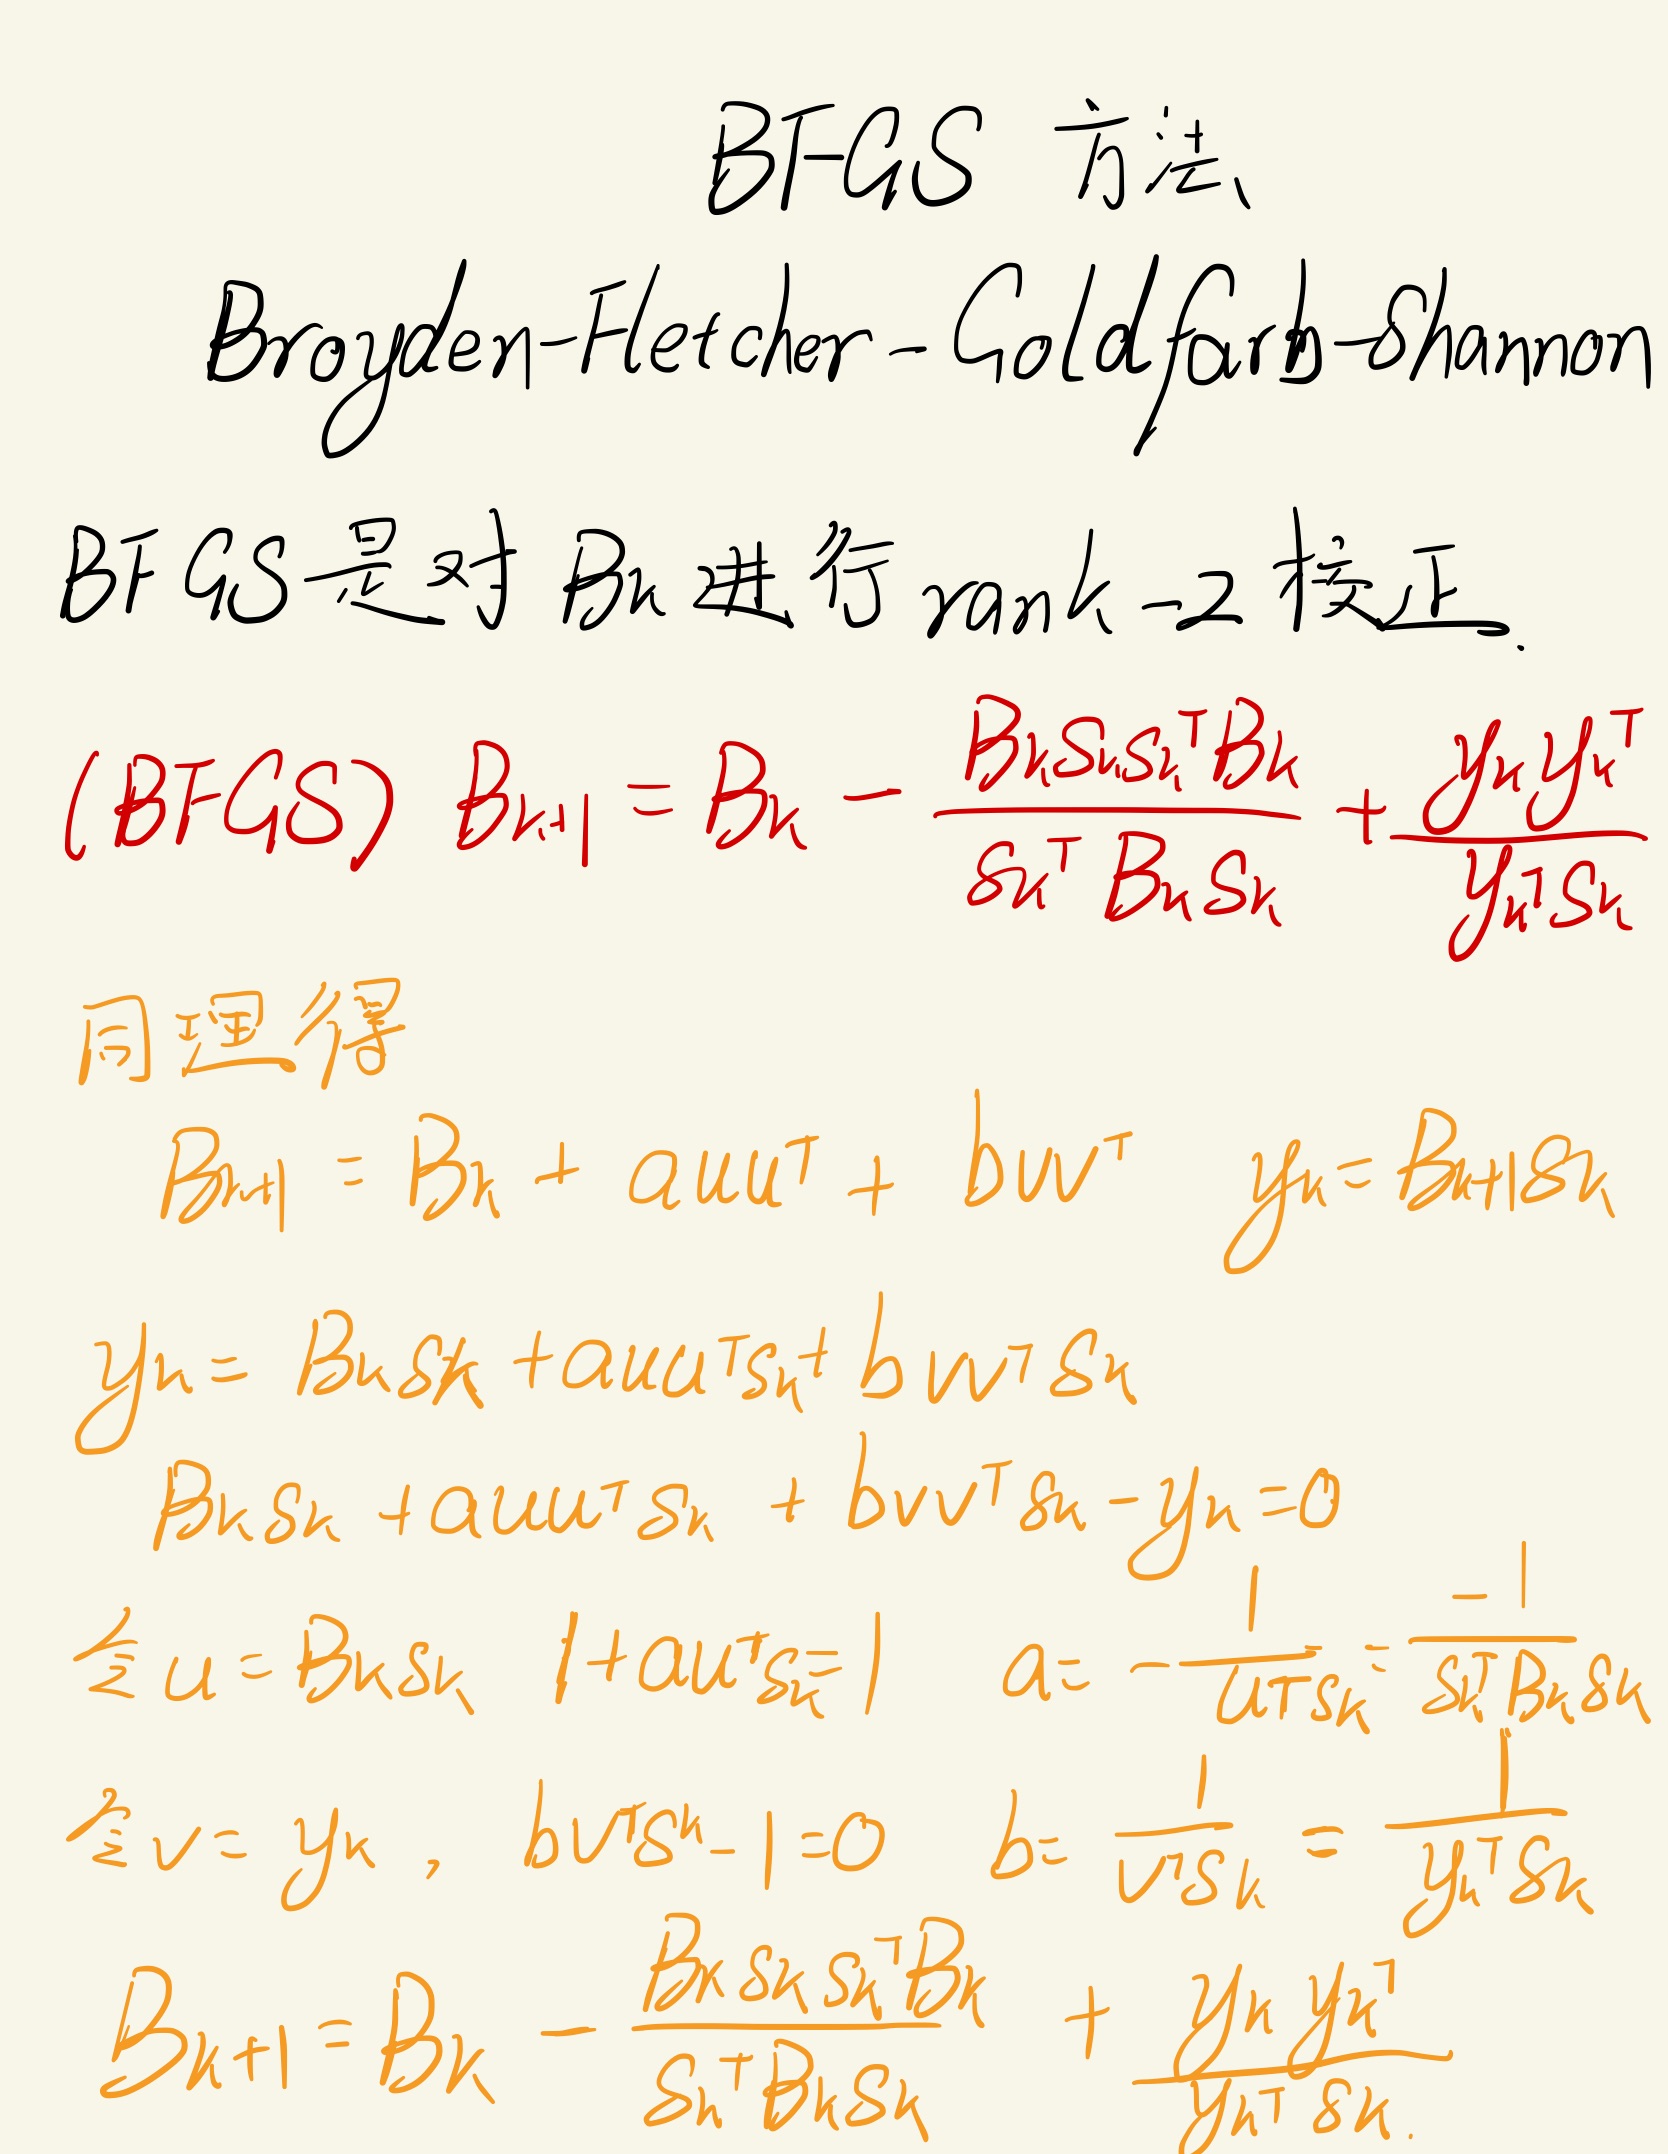 BFGS 方法
Broyden-Fletcher-Goldfarb-Shannon
BFGS是对 Bk 进行 rank-2 校正.
(BFGS) B_{k+1} = B_k - \frac{B_k s_k s_k^T B_k}{s_k^T B_k s_k} + \frac{y_k y_k^T}{y_k^T s_k}
同理得
B_{k+1} = B_k + auu^T + bvv^T y_k = B_{k+1} s_k
y_k = B_k s_k + auu^T s_k + bvv^T s_k
B_k s_k + auu^T s_k + bvv^T s_k - y_k = 0
令 u = B_k s_k 1 + au^T s_k = 1 a = -\frac{1}{u^T s_k} = \frac{-1}{s_k^T B_k s_k}
令 v = y_k , bv^T s_k - 1 = 0 b = \frac{1}{v^T s_k} = \frac{1}{y_k^T s_k}
B_{k+1} = B_k - \frac{B_k s_k s_k^T B_k}{s_k^T B_k s_k} + \frac{y_k y_k^T}{y_k^T s_k}.